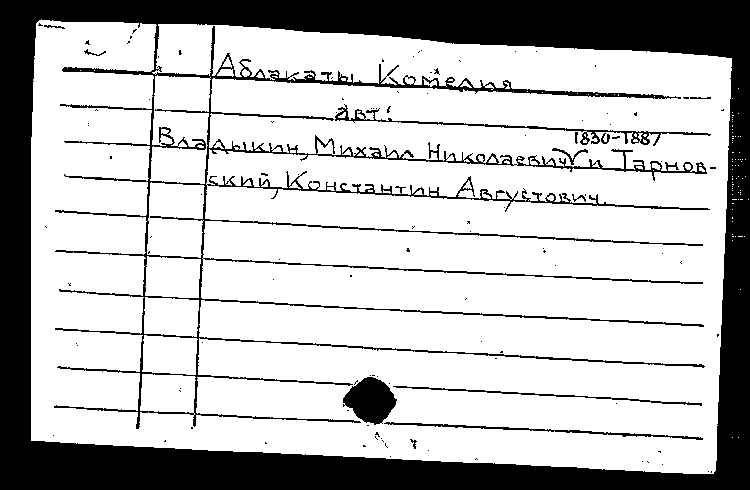 Аблакаты Комедия
авт:
1830-1887
Владыкин, Михаил Николаевич и Тарнов-
ский, Константин Августович.